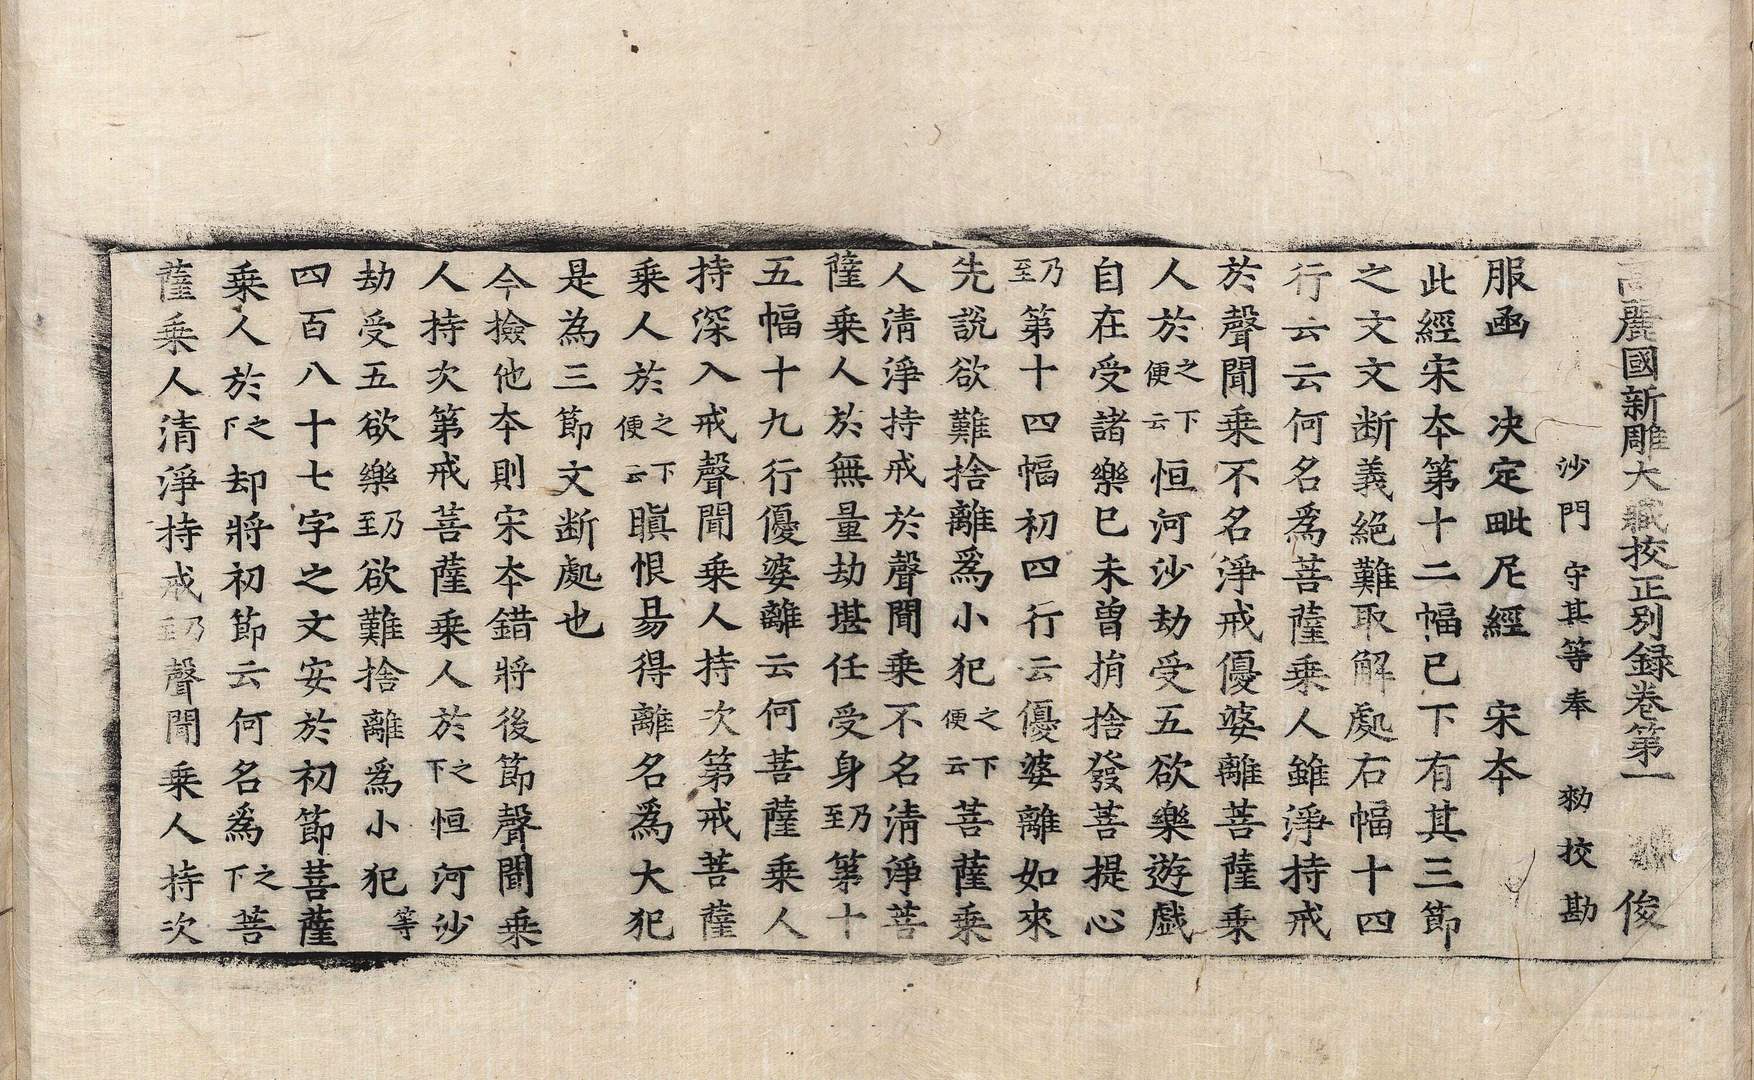 高麗國新雕大藏挍正別録卷第一 俊
沙門守其等奉 勑挍勘
服函 决定毗尼經 宋夲
此經宋夲第十二幅已下有其三節
之文文断義絶難取解處右幅十四
行云云何名爲菩薩乗人雖淨持戒
於聲聞乗不名淨戒優婆離菩薩乗
人於之下便云恒河沙劫受五欲樂遊戲
自在受諸樂已未曽捎捨發菩提心
乃至第十四幅初四行云優婆離如來
先說欲難捨離爲小犯之下便云菩薩乗
人清淨持戒於聲聞乗不名清淨菩
薩乗人於無量劫堪任受身乃至第十
五幅十九行優婆離云何菩薩乗人
持深入戒聲聞乗人持次第戒菩薩
乗人於之下便云瞋恨昜得離名爲大犯
是為三節文断處也
今撿他夲則宋夲錯將後節聲聞乗
人持次第戒菩薩乗人於之下恒河沙
劫受五欲樂乃至欲難捨離爲小犯等
四百八十七字之文安於初節菩薩
乗人於之下却將初節云何名爲之下菩
薩乗人清淨持戒乃至聲聞乗人持次